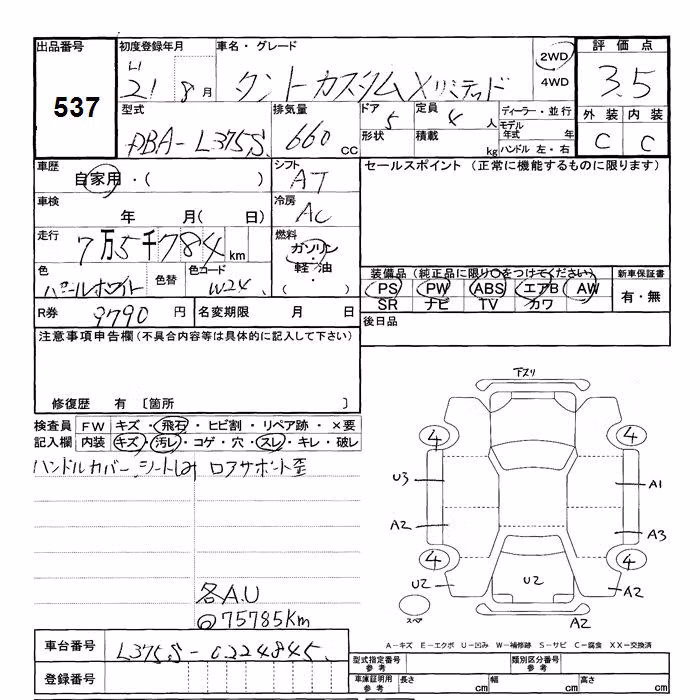 出品番号 初度登録年月 車名・グレード 2WD 評価点
537 H 21 8月 タントカスタムXリミテッド 4WD 3.5
型式 排気量 ドア 5 定員 4 人 ディーラー・並行 外装 内装
DBA-L375S 660 cc 形状 積載 kg モデル年式 年 ハンドル 左・右 C C
車歴 自家用・( ) シフト AT セールスポイント (正常に機能するものに限ります)
車検 年 月( 日) 冷房 AC
走行 7万5千784km 燃料 ガソリン・軽油・( )
色 パールホワイト 色替 色コード W24
装備品(純正品に限り○をつけてください) 新車保証書
PS PW ABS エアB AW 有・無
SR ナビ TV カワ
R券 9790円 名変期限 月 日 後日品
注意事項申告欄(不具合内容等は具体的に記入して下さい)
修復歴 有 〔箇所 〕
検査員 FW キズ・飛石・ヒビ割・リペア跡・×要
記入欄 内装 キズ・汚レ・コゲ・穴・スレ・キレ・破レ
ハンドルカバー、シートしみ ロアサポート歪
下スリ
4 4
U3 A1
A2 A3
4 4
U2 U2 A2
スペア A2
各A.U
◎75785Km
A-キズ E-エクボ U-凹み W-補修跡 S-サビ C-腐食 XX-交換済
車台番号 L375S-0224845
型式指定番号 参考 類別区分番号 参考
登録番号 車庫証明用 参考 長さ cm 幅 cm 高さ cm